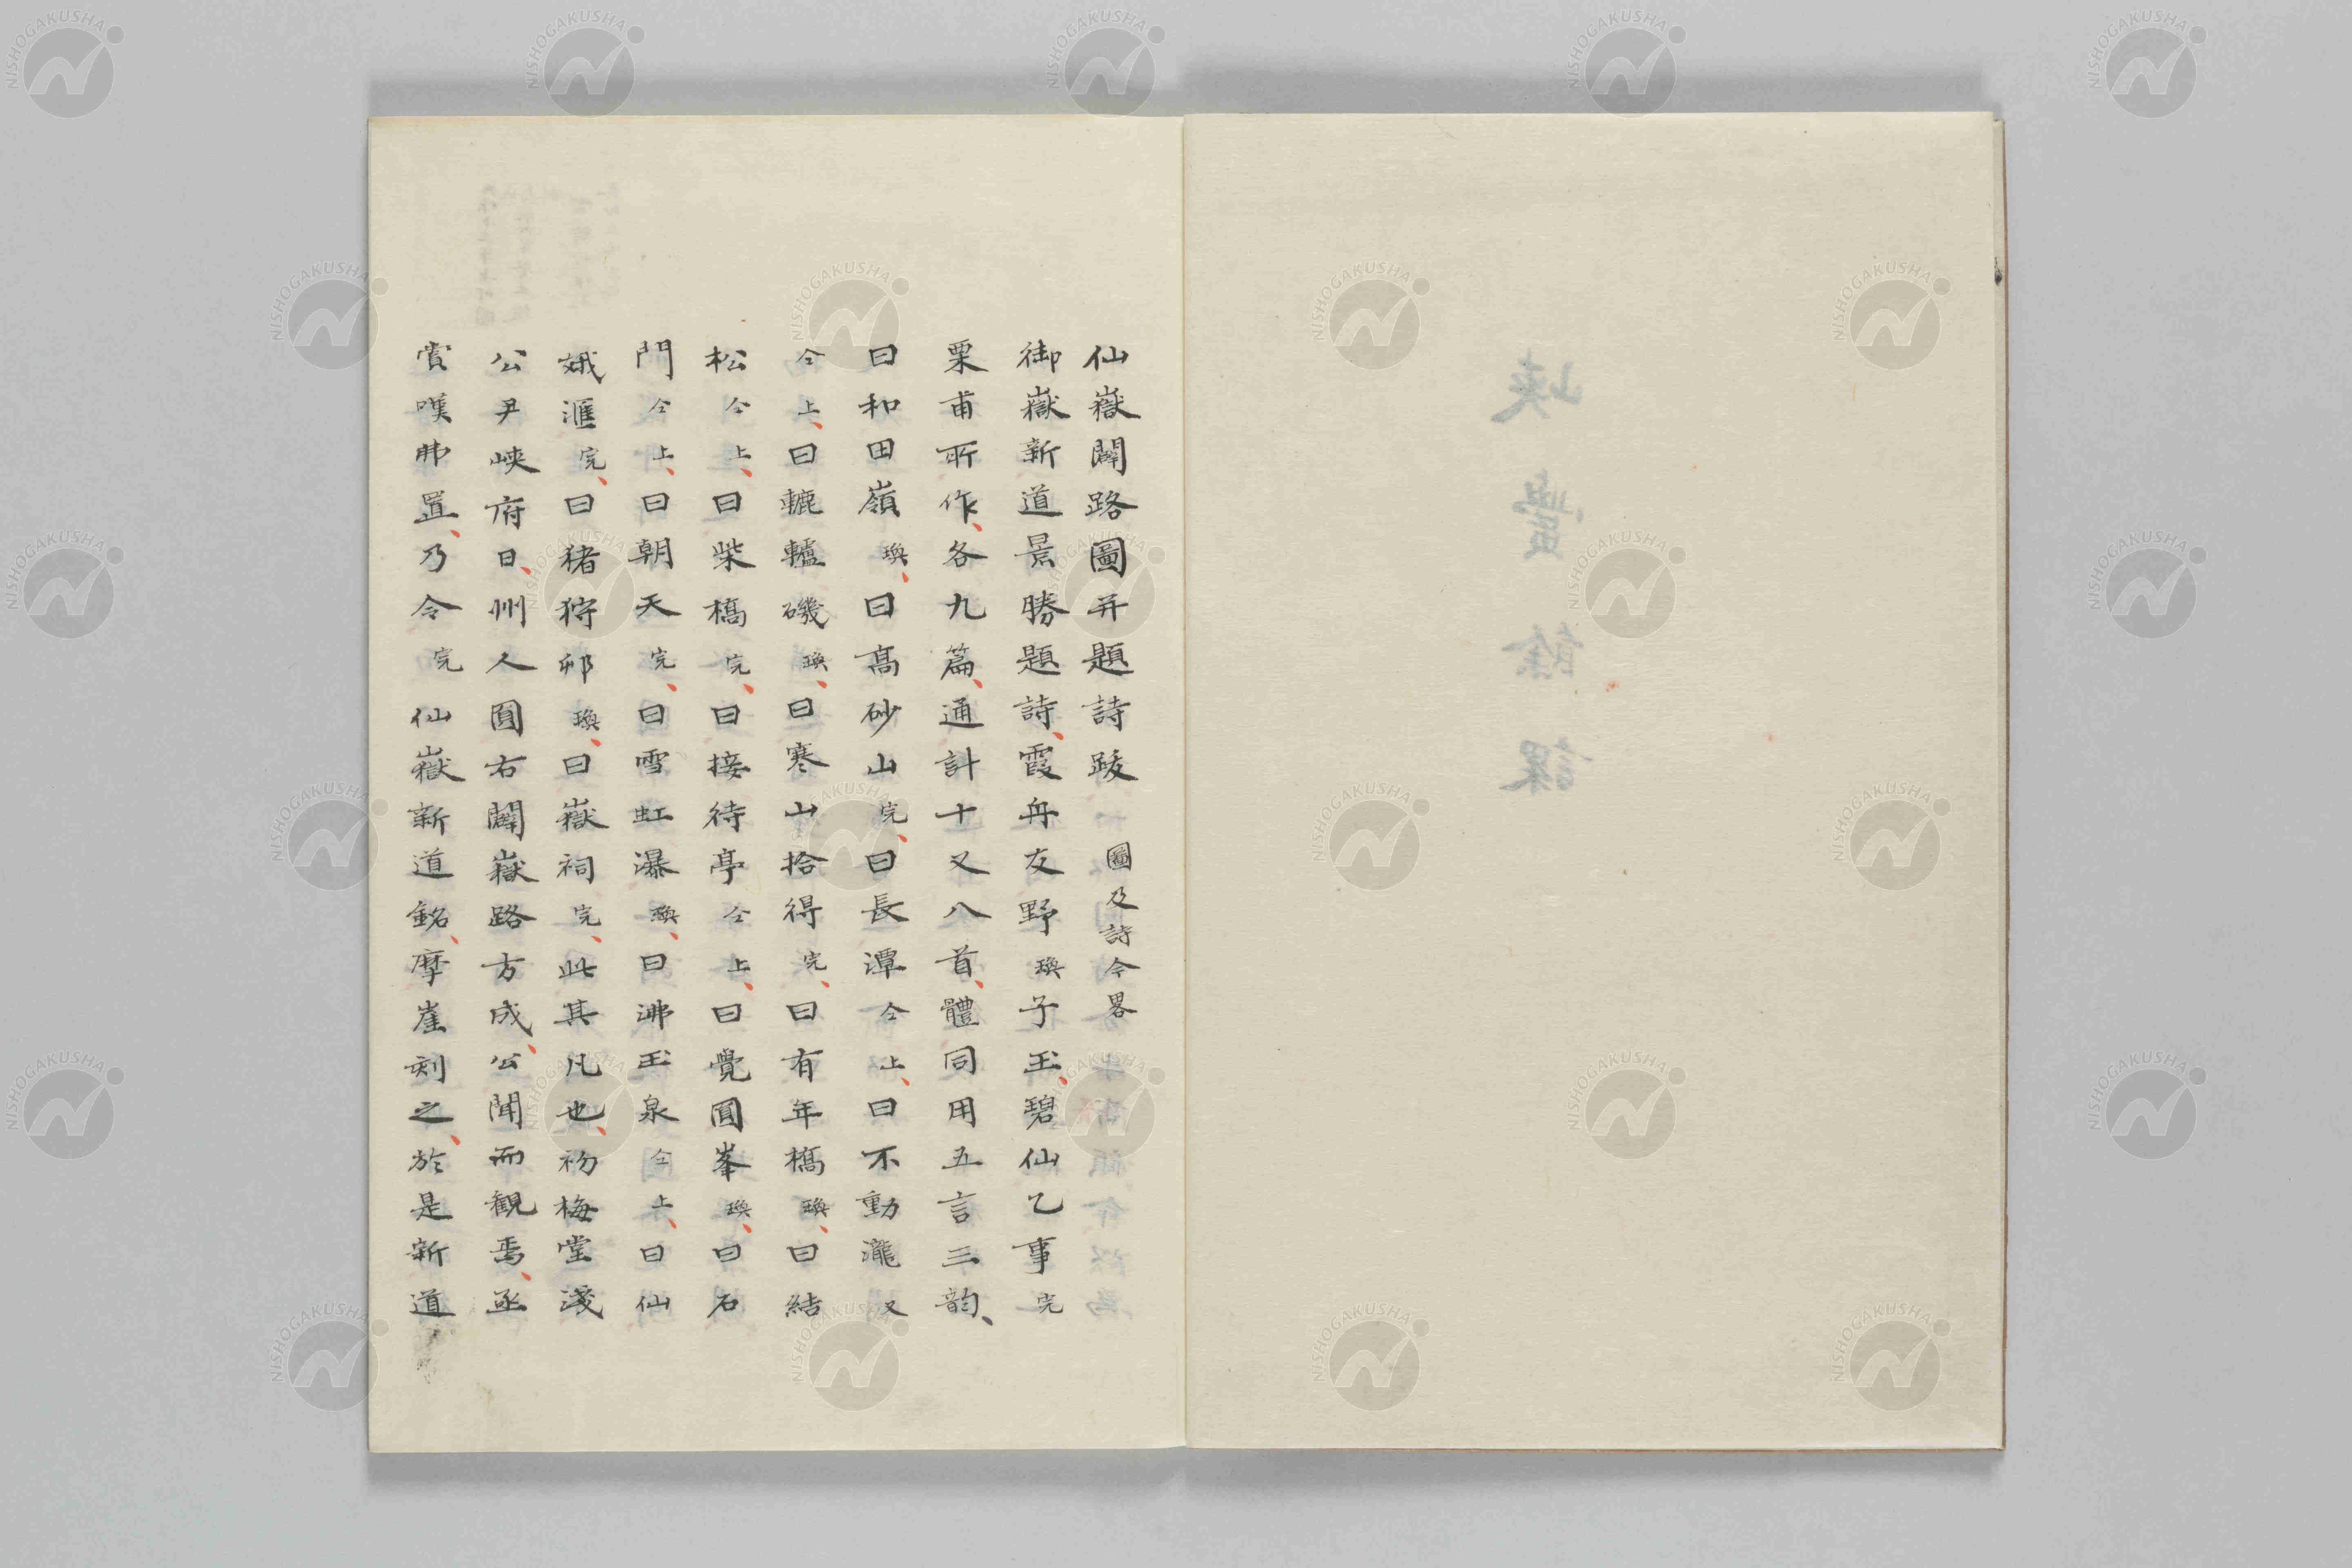 仙嶽闢路圖并題詩跋 圖及詩今畧
御嶽新道景勝題詩、霞舟友野瑍子玉、碧仙乙事完
栗甫所作、各九篇、通計十又八首、體同用五言三韵、
曰和田嶺瑍、曰高砂山完、曰長潭仝上、曰不動瀧又
仝上、曰轆轤磯瑍、曰寒山拾得完、曰有年橋瑍、曰結
松仝上、曰柴橋完、曰接待亭仝上、曰覺圓峯瑍、曰石
門仝上、曰朝天完、曰雪虹瀑瑍、曰沸玉泉仝上、曰仙
娥滙完、曰猪狩邨瑍、曰嶽祠完、此其凡也、初梅堂淺
公尹峽府日、州人圓右闢嶽路方成、公聞而觀焉、亟
賞嘆弗置、乃令完仙嶽新道銘、摩崖刻之、於是新道
NISHOGAKUSHA